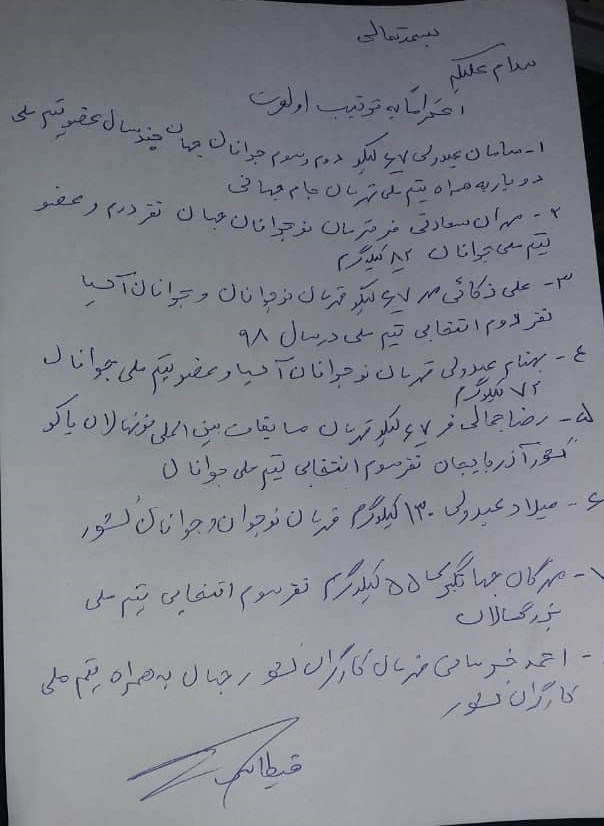 بسمه تعالی
سلام علیکم
احتراما به ترتیب اولویت
۱- سامان عبدولی ۶۷ کیلو دوم و سوم جوانان جهان چند سال عضو تیم ملی
دو بار به همراه تیم ملی قهرمان جام جهانی
۲- مهران سعادتی فر قهرمان نوجوانان جهان نفر دوم و عضو
تیم ملی جوانان ۸۲ کیلوگرم
۳- علی ذکائی مهر ۶۷ کیلو قهرمان نوجوانان و جوانان آسیا
نفر دوم انتخابی تیم ملی در سال ۹۸
۴- بهنام عبدولی قهرمان نوجوانان آسیا و عضو تیم ملی جوانان
۷۲ کیلوگرم
۵- رضا جمالی فر ۶۷ کیلو قهرمان مسابقات بین المللی نونهالان باکو
کشور آذربایجان نفر سوم انتخابی تیم ملی جوانان
۶- میلاد عبدولی ۱۳۰ کیلوگرم قهرمان نوجوان و جوانان کشور
۷- مهرگان جهانگیری ۵۵ کیلوگرم نفر سوم انتخابی تیم ملی
بزرگسالان
- احمد قهرمان کارگران کشور و جهان به همراه تیم ملی
کارگران کشور